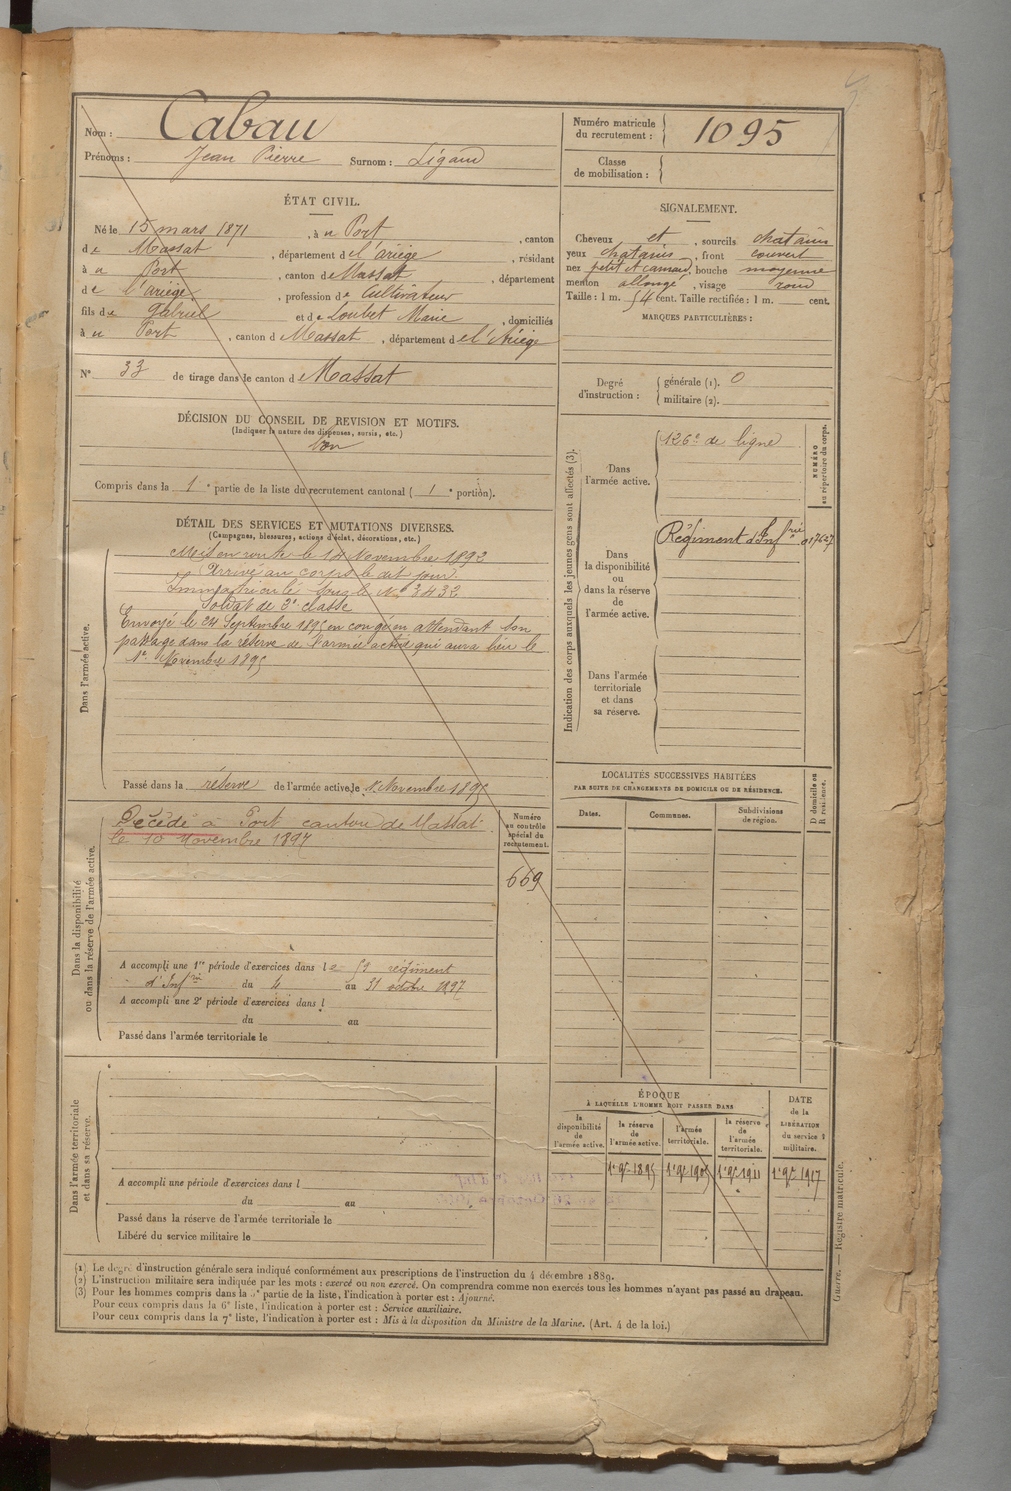 Nom : Cabau
Prénoms : Jean Pierre Surnom : Ligaud
Numéro matricule du recrutement : 1095
Classe de mobilisation :
ÉTAT CIVIL.
Né le 15 mars 1871, à u Port, canton
de Massat, département de l'ariège, résidant
à u Port, canton de Massat, département
de l'ariège, profession de Cultivateur
fils de Gabriel et de Loubet Marie, domiciliés
à u Port, canton de Massat, département de l'Ariège
N° 33 de tirage dans le canton de Massat
SIGNALEMENT.
Cheveux et, sourcils chatains
yeux chatains, front couvert
nez petit et camard, bouche moyenne
menton allongé, visage rond
Taille : 1 m. 54 cent. Taille rectifiée : 1 m. cent.
MARQUES PARTICULIÈRES :
Degré d'instruction : générale (1). 0
militaire (2).
DÉCISION DU CONSEIL DE REVISION ET MOTIFS.
(Indiquer la nature des dispenses, sursis, etc.)
bon
Compris dans la 1e partie de la liste du recrutement cantonal (1e portion).
DÉTAIL DES SERVICES ET MUTATIONS DIVERSES.
(Campagnes, blessures, actions d'éclat, décorations, etc.)
Dans l'armée active.
Mis en route le 14 Novembre 1892
Arrivé au corps le dit jour.
Immatriculé sous le N° 3432
Soldat de 2e classe
Envoyé le 24 Septembre 1895 en congé en attendant son
passage dans la réserve de l'armée active qui aura lieu le
1er Novembre 1895
Passé dans la réserve de l'armée active le 1er Novembre 1895
Indication des corps auxquels les jeunes gens sont affectés (3).
NUMÉRO au répertoire du corps.
Dans l'armée active.
126e de ligne
Dans la disponibilité ou dans la réserve de l'armée active.
Régiment d'Infrie
Dans l'armée territoriale et dans sa réserve.
LOCALITÉS SUCCESSIVES HABITÉES
PAR SUITE DE CHANGEMENTS DE DOMICILE OU DE RÉSIDENCE.
Dates.
Communes.
Subdivisions de région.
D domicile ou R résidence.
Dans la disponibilité ou dans la réserve de l'armée active.
Numéro au contrôle spécial du recrutement.
669
Décédé à Port canton de Massat
le 10 Novembre 1897
A accompli une 1re période d'exercices dans le 59 régiment
d'Infrie du 4 au 31 octobre 1897
A accompli une 2e période d'exercices dans l
du au
Passé dans l'armée territoriale le
Dans l'armée territoriale et dans sa réserve.
A accompli une période d'exercices dans l
du au
Passé dans la réserve de l'armée territoriale le
Libéré du service militaire le
ÉPOQUE
À LAQUELLE L'HOMME DOIT PASSER DANS
la disponibilité de l'armée active.
la réserve de l'armée active.
l'armée territoriale.
la réserve de l'armée territoriale.
DATE de la LIBÉRATION du service militaire.
1er 9bre 1895
1er 9bre 1905
1er 9bre 1911
1er 9bre 1917
(1) Le degré d'instruction générale sera indiqué conformément aux prescriptions de l'instruction du 4 décembre 1889.
(2) L'instruction militaire sera indiquée par les mots : exercé ou non exercé. On comprendra comme non exercés tous les hommes n'ayant pas passé au drapeau.
(3) Pour les hommes compris dans la partie de la liste, l'indication à porter est : Ajourné.
Pour ceux compris dans la 6e liste, l'indication à porter est : Service auxiliaire.
Pour ceux compris dans la 7e liste, l'indication à porter est : Mis à la disposition du Ministre de la Marine. (Art. 4 de la loi.)
Guerre. — Registre matricule.